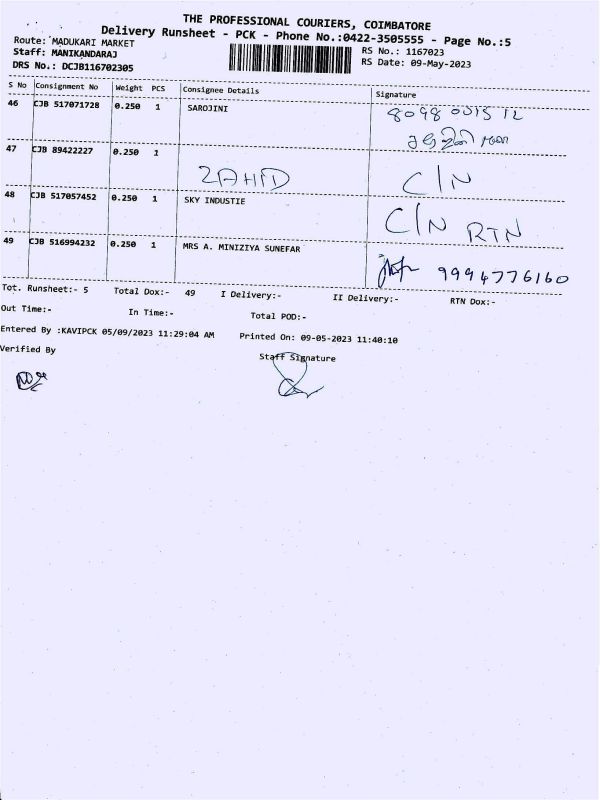 THE PROFESSIONAL COURIERS, COIMBATORE
Delivery Runsheet - PCK - Phone No.:0422-3505555 - Page No.:5
Route: MADUKARI MARKET
RS No.: 1167023
Staff: MANIKANDARAJ
RS Date: 09-May-2023
DRS No.: DCJB116702305
S No Consignment No Weight PCS Consignee Details Signature
46 CJB 517071728 0.250 1 SAROJINI
47 CJB 89422227 0.250 1 ZAHID C/N
48 CJB 517057452 0.250 1 SKY INDUSTIE C/N RTN
49 CJB 516994232 0.250 1 MRS A. MINIZIYA SUNEFAR 9994776160
Tot. Runsheet:- 5 Total Dox:- 49 I Delivery:- II Delivery:- RTN Dox:-
Out Time:- In Time:- Total POD:-
Entered By :KAVIPCK 05/09/2023 11:29:04 AM Printed On: 09-05-2023 11:40:10
Verified By Staff Signature